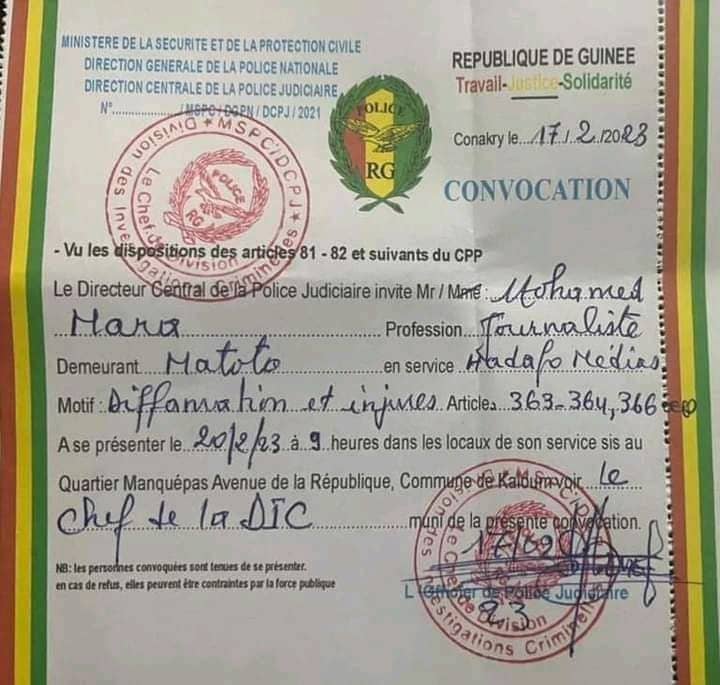 MINISTERE DE LA SECURITE ET DE LA PROTECTION CIVILE
DIRECTION GENERALE DE LA POLICE NATIONALE
DIRECTION CENTRALE DE LA POLICE JUDICIAIRE
N°................../MSPC/DGPN/DCPJ/2021
REPUBLIQUE DE GUINEE
Travail-Justice-Solidarité
POLICE
RG
Conakry le...17/2/2023
CONVOCATION
MSPC/DCPJ
Division des Investigations Criminelles
Le Chef de Division
POLICE
RG
- Vu les dispositions des articles 81 - 82 et suivants du CPP
Le Directeur Central de la Police Judiciaire invite Mr / Mme : Mohamed
Mara Profession Journaliste
Demeurant Matoto en service Hadafo Médias
Motif : Diffamation et injures Articles 363-364, 366
A se présenter le 20/2/23 à 9 heures dans les locaux de son service sis au
Quartier Manquépas Avenue de la République, Commune de Kaloum voir le
Chef de la DIC muni de la présente convocation.
NB: les personnes convoquées sont tenues de se présenter.
en cas de refus, elles peuvent être contraintes par la force publique
L'Officier de Police Judiciaire
MSPC/
Division des Investigations Criminelles
Le Chef de Division